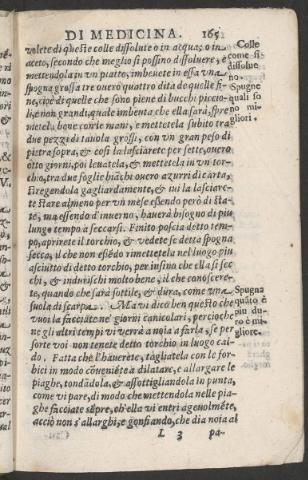 DI MEDICINA. 165
volete di queste colle dissolute o in acqua, o in
aceto, secondo che meglio si possino dissoluere, e
mettendola in vn piatto, imbeuete in essa vna
spugna grossa tre ouero quattro dita de quelle fi-
ne, cioè di quelle che sono piene di bucchi piccio-
li, e non grandi, quale imbeuta che ella sarà, spre
metela bene con le mani, e mettetela subito tra
due pezzi di tauola grossi, con vn gran peso di
pietra sopra, & così la lasciarete per sette, ouero
otto giorni, poi leuatela, & mettetela in vn tor-
chio, tra due foglie biāchi ouero azurri di carta,
stregendola gagliardamente, & iui la lasciare-
te stare almeno per vn mese essendo però di sta-
te, ma essendo d'inuerno, hauerà bisogno di piu
lungo tempo à seccarsi. Finito poscia detto tem-
po, aprirete il torchio, & vedete se detta spogna
secca, il che non essēdo rimettetela nel luogo piu
asciutto di detto torchio, per insino che ella si sec
chi, & indurischi molto bene, il che conoscere-
te, quando che sarà sottile, & dura, come vna
suola di scarpa. Ma vi dico ben questo che
voi la facciate ne' giorni canicolari, percioche
ne gli altri tempi vi verrà a noia a farla, se per
sorte voi non tenete detto torchio in luogo cal-
do. Fatta che l'hauerete, tagliatela con le for-
bici in modo cōueniēte à dilatare, e allargare le
piaghe, tondādola, & assottigliandola in punta,
come vi pare, di modo che mettendola nelle pia-
ghe facciate sēpre, ch'ella vi entri ageuolmēte,
acciò non s'allarghi, e gonfiando, che dia noia al
L 3 pa-
Colle
come si
dissolue
no.
Spugne
quali so
no mi-
gliori.
Spugna
quāto è
piu du-
ra è mi-
gliore.